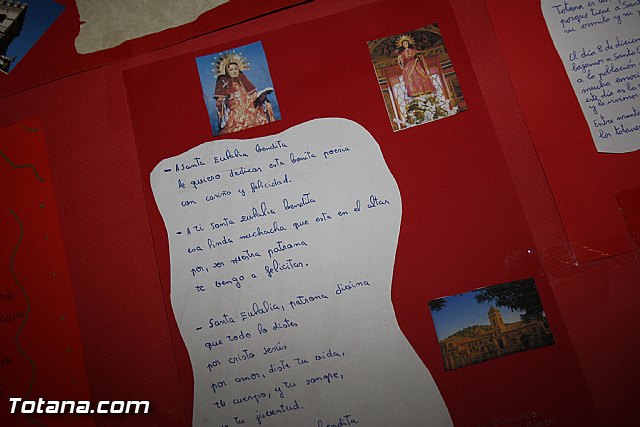 - A Santa Eulalia bendita
le quiero dedicar esta bonita poesia
con cariño y felicidad.
- A ti Santa eulalia bendita
esa linda muchacha que esta en el altar
por, ser nuestra patrona
te vengo a felicitar.
- Santa Eulalia, patrona divina
que todo lo distes
por cristo Jesús
por amor, diste tu vida,
tu cuerpo, y tu sangre,
tu juventud.
bendita
Totana es
porque tiene a San
su ermita y su
El día 8 de dicie
bajamos a Santa
a la población
mucha emo
este día es la
y la vemos
Entre mante
los totane
Totana.com